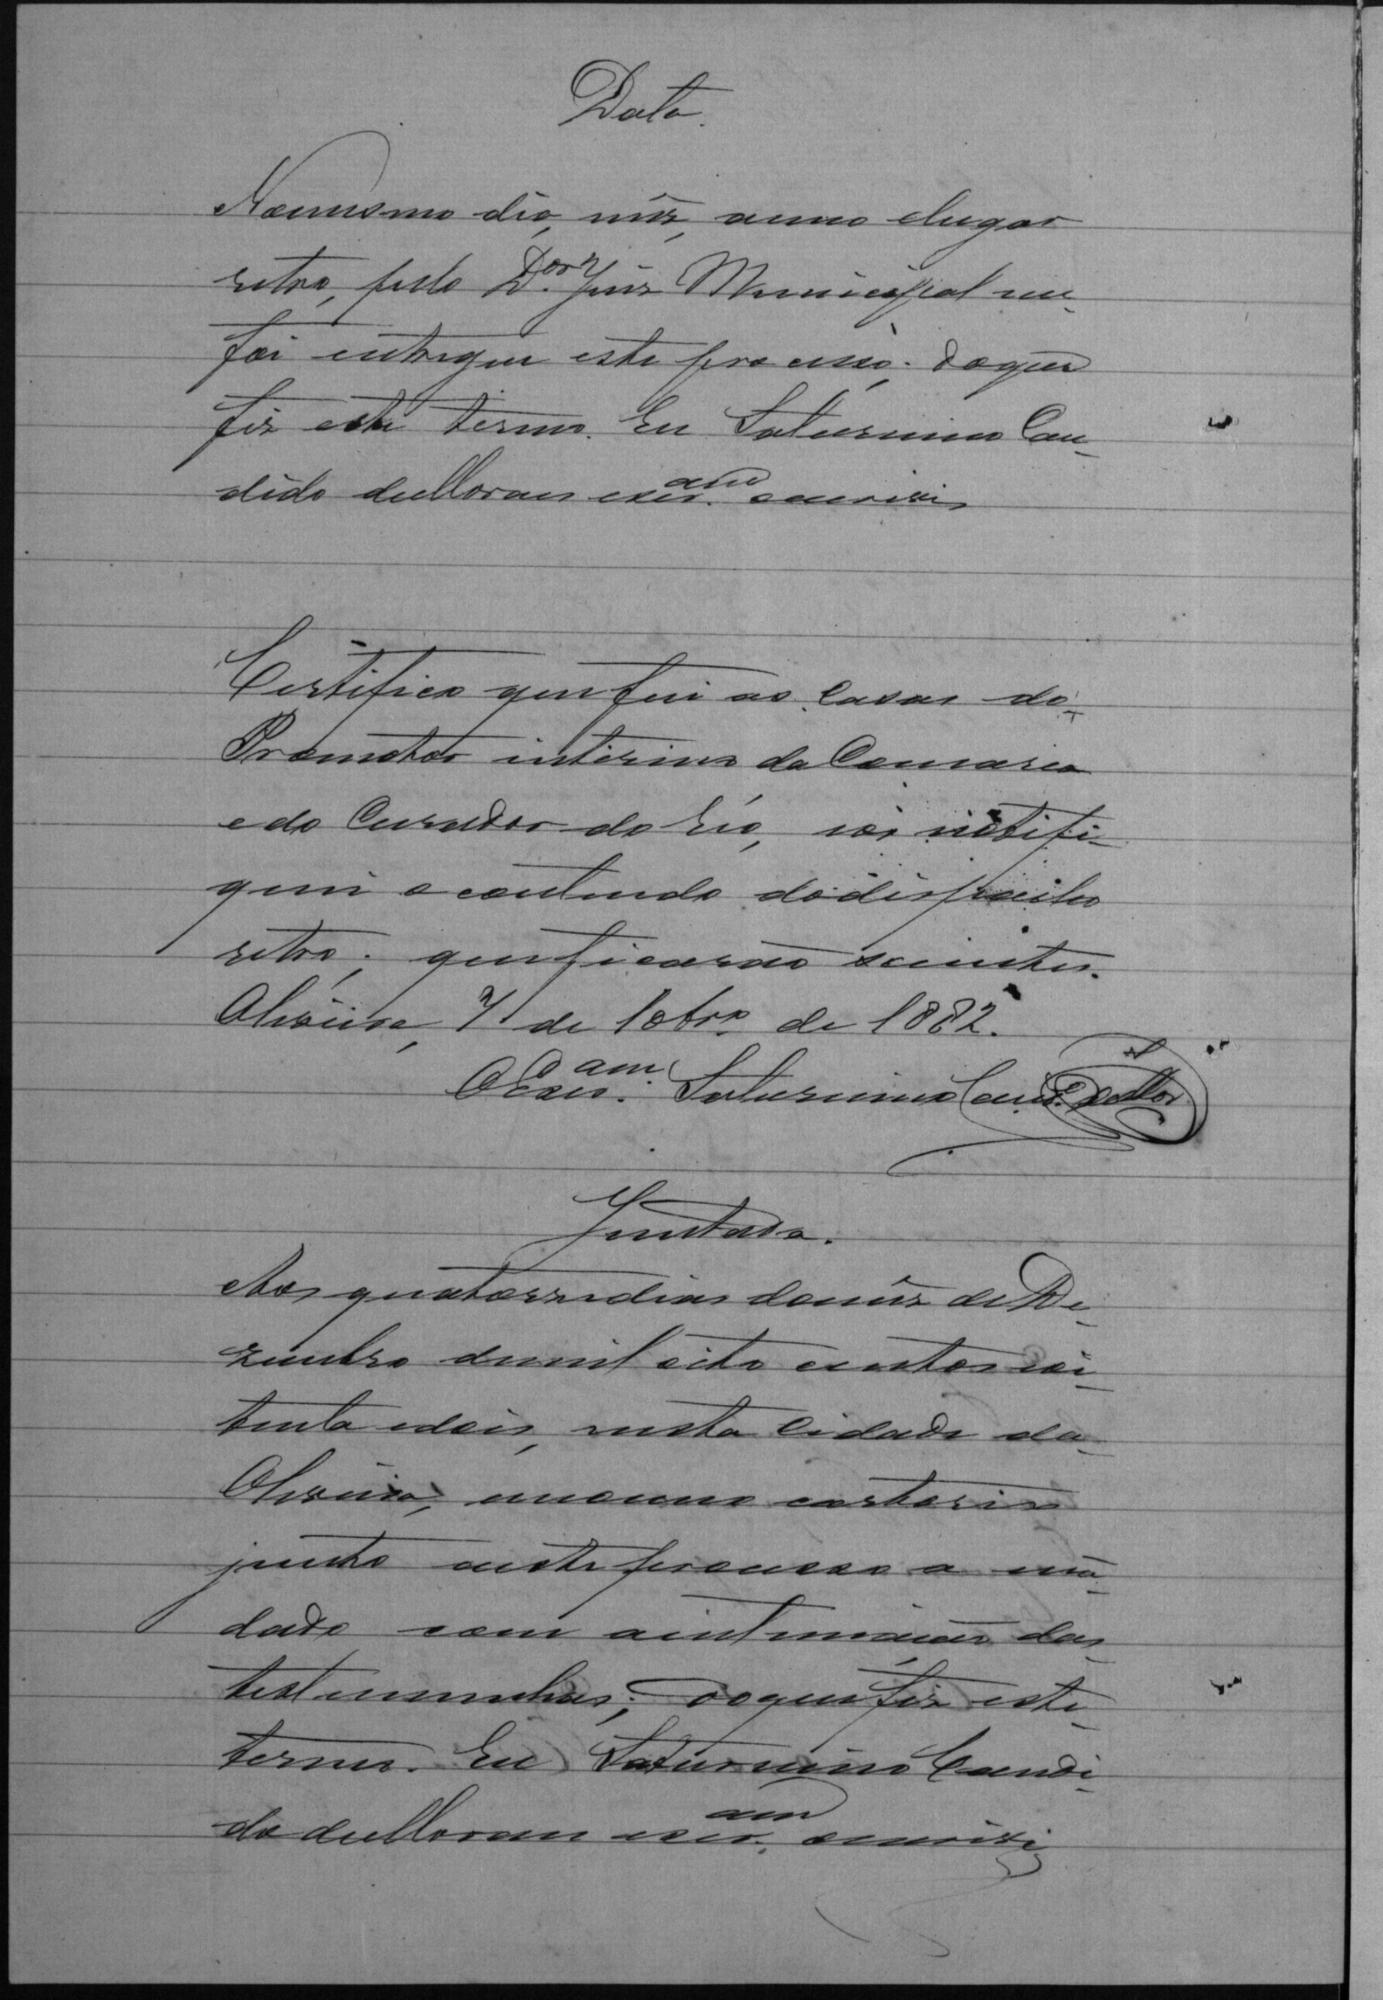 Data.
Nomesmo dia, mez, anno elugar
retro, pelo D.or Juiz Municipal me
foi entregue este processo. doque
fiz este termo. Eu Saturnino Can-
dido deMoraes escr.am oescrivi
Certifico quefui as casas do
Promotor interino da Comarca
edo Curador do Réo, ehi notifi-
quei o contendo dodespacho
retro; queficarão scientes.
Oliveira, 7 de 10br.o de 1882.
OEscr.am Saturnino Cand.o deMor.
Juntada.
Aos quatorzedias domez deDe-
zembro demil oito centos eoi-
tenta edois, nesta Cidade da
Oliveira, emomeo cartorio
junto aeste processo o man-
dado com aintimação das
testemunhas; doquefiz este
termo. Eu Saturnino Candi-
do deMoraes escr.am oescrivi